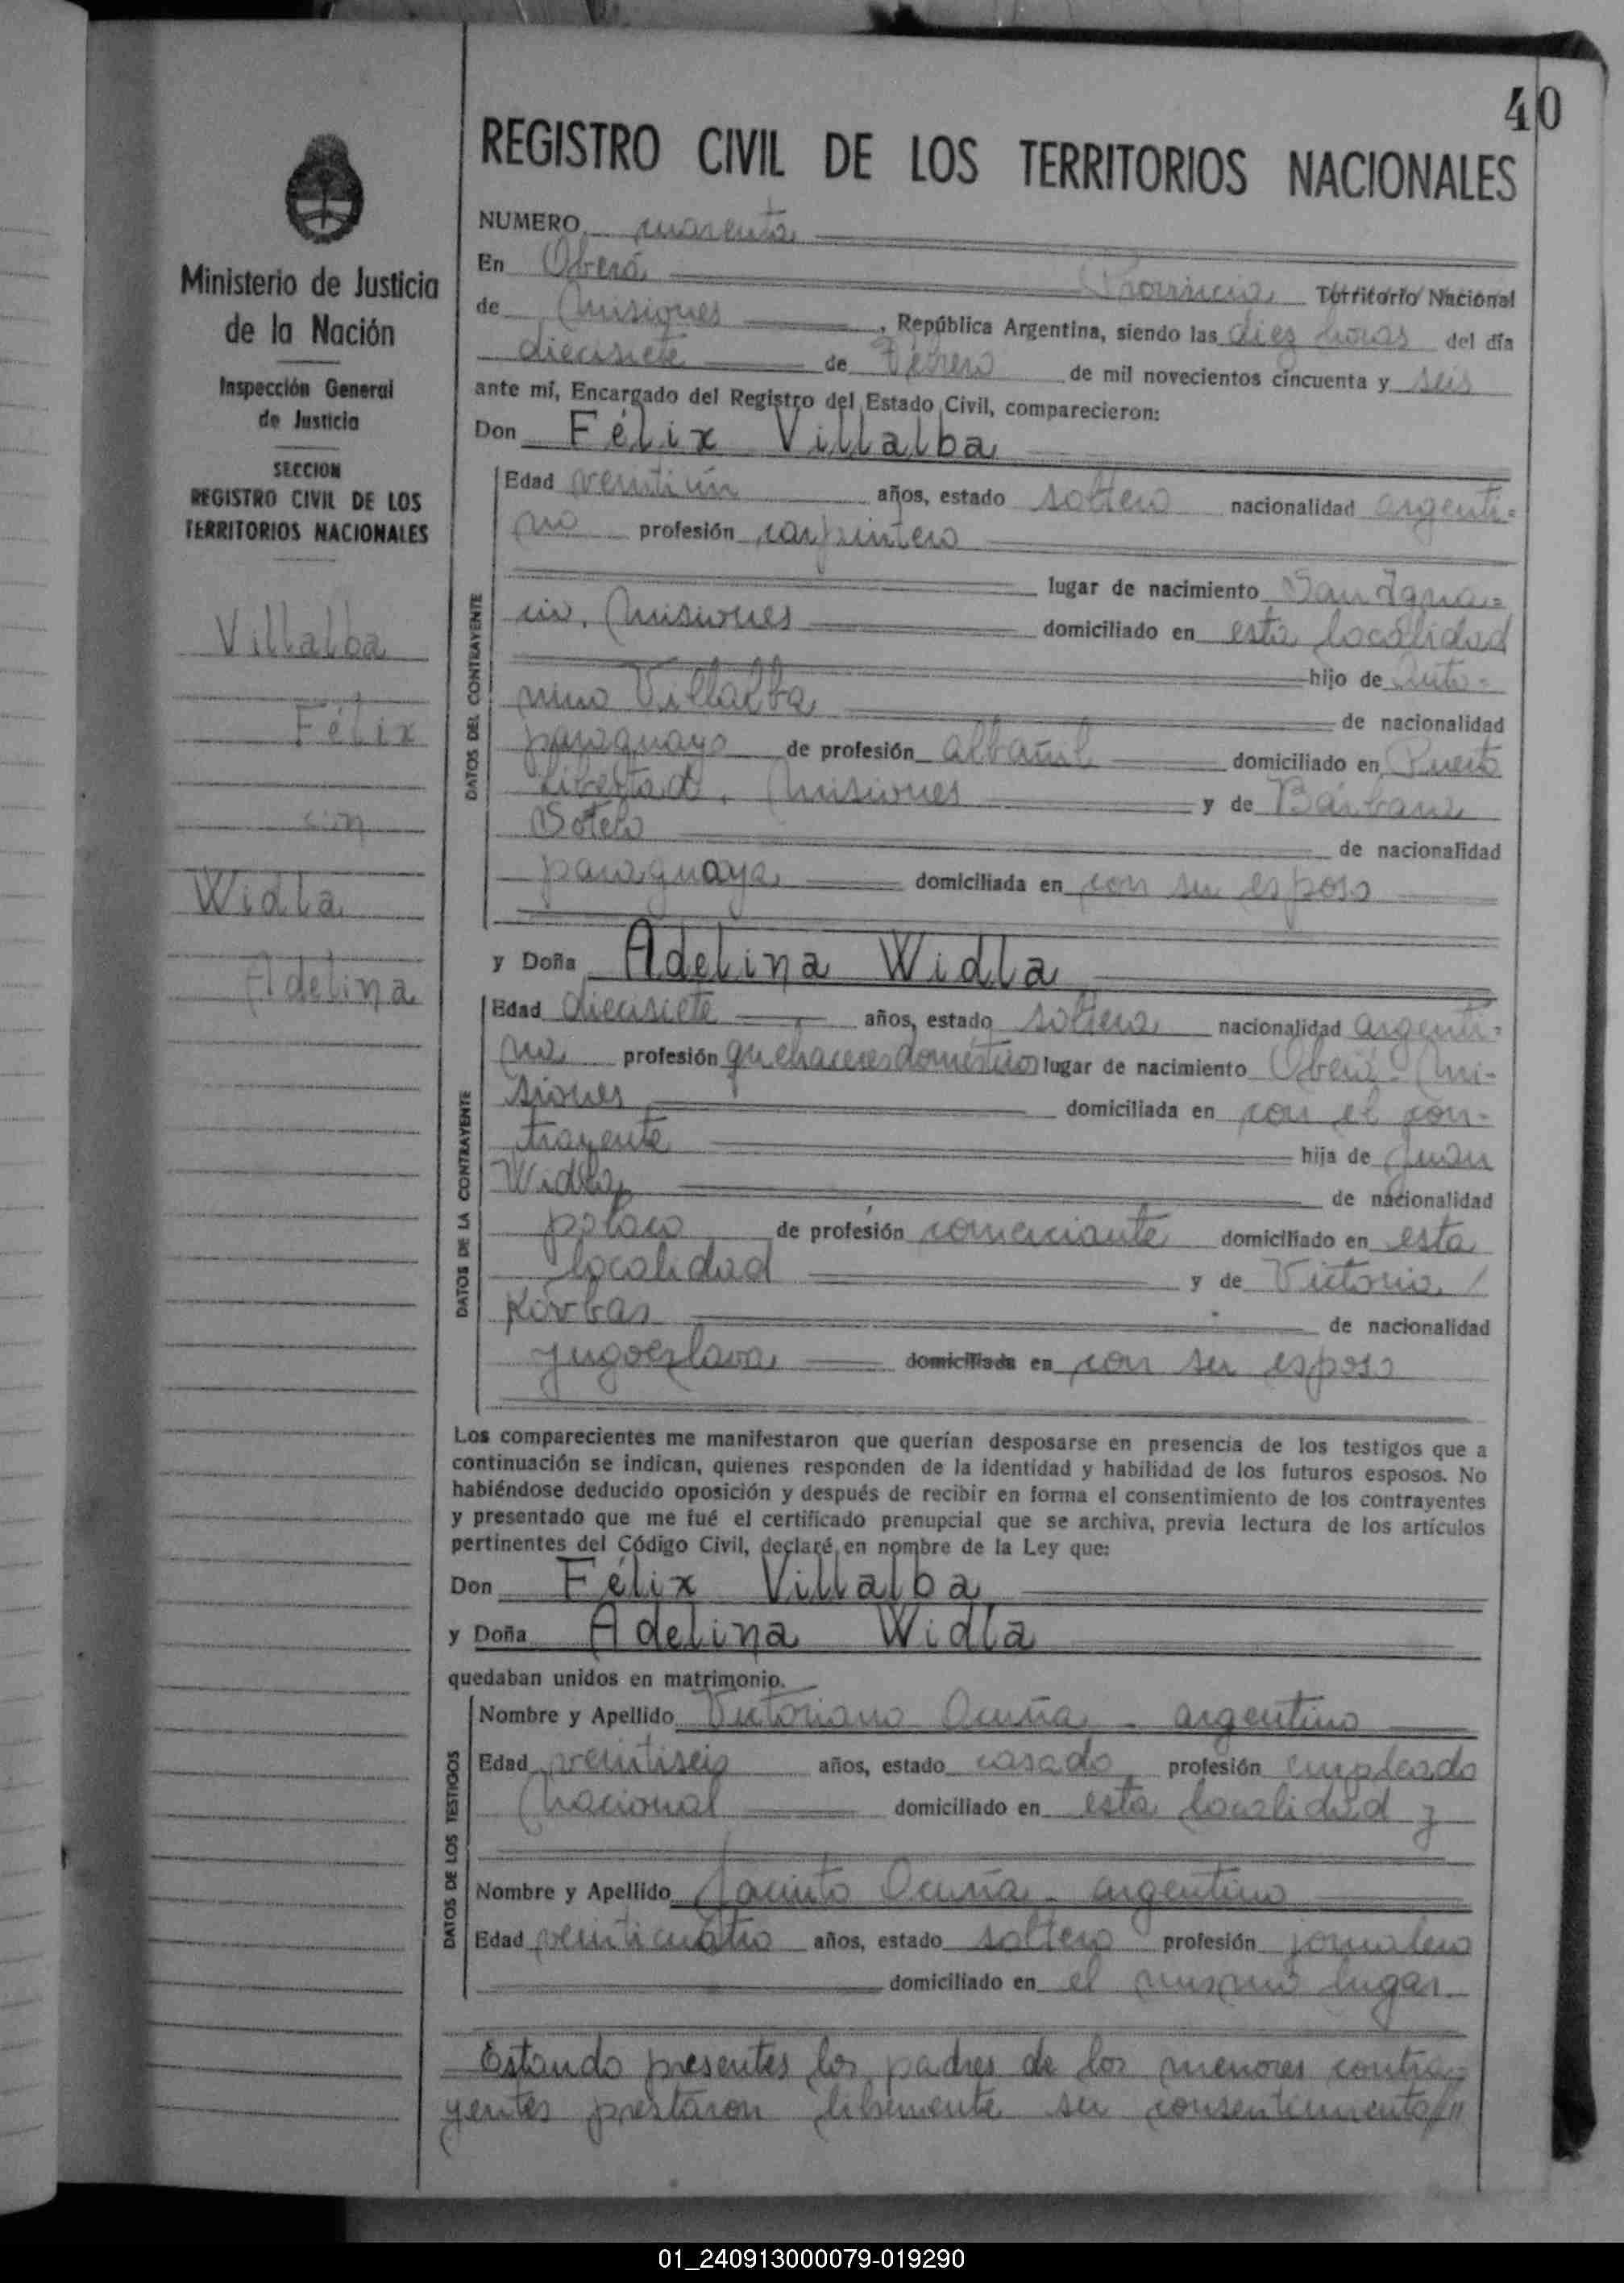 40
REGISTRO CIVIL DE LOS TERRITORIOS NACIONALES
Ministerio de Justicia
de la Nación
Inspección General
de Justicia
SECCION
REGISTRO CIVIL DE LOS
TERRITORIOS NACIONALES
Villalba
Félix
con
Widla
Adelina
NUMERO cuarenta
En Oberá Provincia Territorio Nacional
de Misiones, República Argentina, siendo las diez horas del día
diecisiete de Febrero de mil novecientos cincuenta y seis
ante mí, Encargado del Registro del Estado Civil, comparecieron:
Don Félix Villalba
DATOS DEL CONTRAYENTE
Edad veintiún años, estado soltero nacionalidad argenti=
no profesión carpintero
lugar de nacimiento San Igna=
cio, Misiones domiciliado en esta localidad
hijo de Anto=
nino Villalba de nacionalidad
paraguayo de profesión albañil domiciliado en Puerto
Libertad, Misiones y de Bárbara
Sotelo de nacionalidad
paraguaya domiciliada en con su esposo
y Doña Adelina Widla
DATOS DE LA CONTRAYENTE
Edad diecisiete años, estado soltera nacionalidad argenti=
na profesión quehaceres domésticos lugar de nacimiento Oberá - Mi-
siones domiciliada en con el con-
trayente hija de Juan
Widla de nacionalidad
polaco de profesión comerciante domiciliado en esta
localidad y de Victoria /
Korbas de nacionalidad
yugoeslava domiciliada en con su esposo
Los comparecientes me manifestaron que querían desposarse en presencia de los testigos que a
continuación se indican, quienes responden de la identidad y habilidad de los futuros esposos. No
habiéndose deducido oposición y después de recibir en forma el consentimiento de los contrayentes
y presentado que me fué el certificado prenupcial que se archiva, previa lectura de los artículos
pertinentes del Código Civil, declaré en nombre de la Ley que:
Don Félix Villalba
y Doña Adelina Widla
quedaban unidos en matrimonio.
DATOS DE LOS TESTIGOS
Nombre y Apellido Victoriano Acuña - argentino
Edad veintiseis años, estado casado profesión empleado
nacional domiciliado en esta localidad y
Nombre y Apellido Jacinto Acuña - argentino
Edad veinticuatro años, estado soltero profesión jornalero
domiciliado en el mismo lugar.
Estando presentes los padres de los menores contra=
yentes prestaron libremente su consentimiento//"
01_240913000079-019290